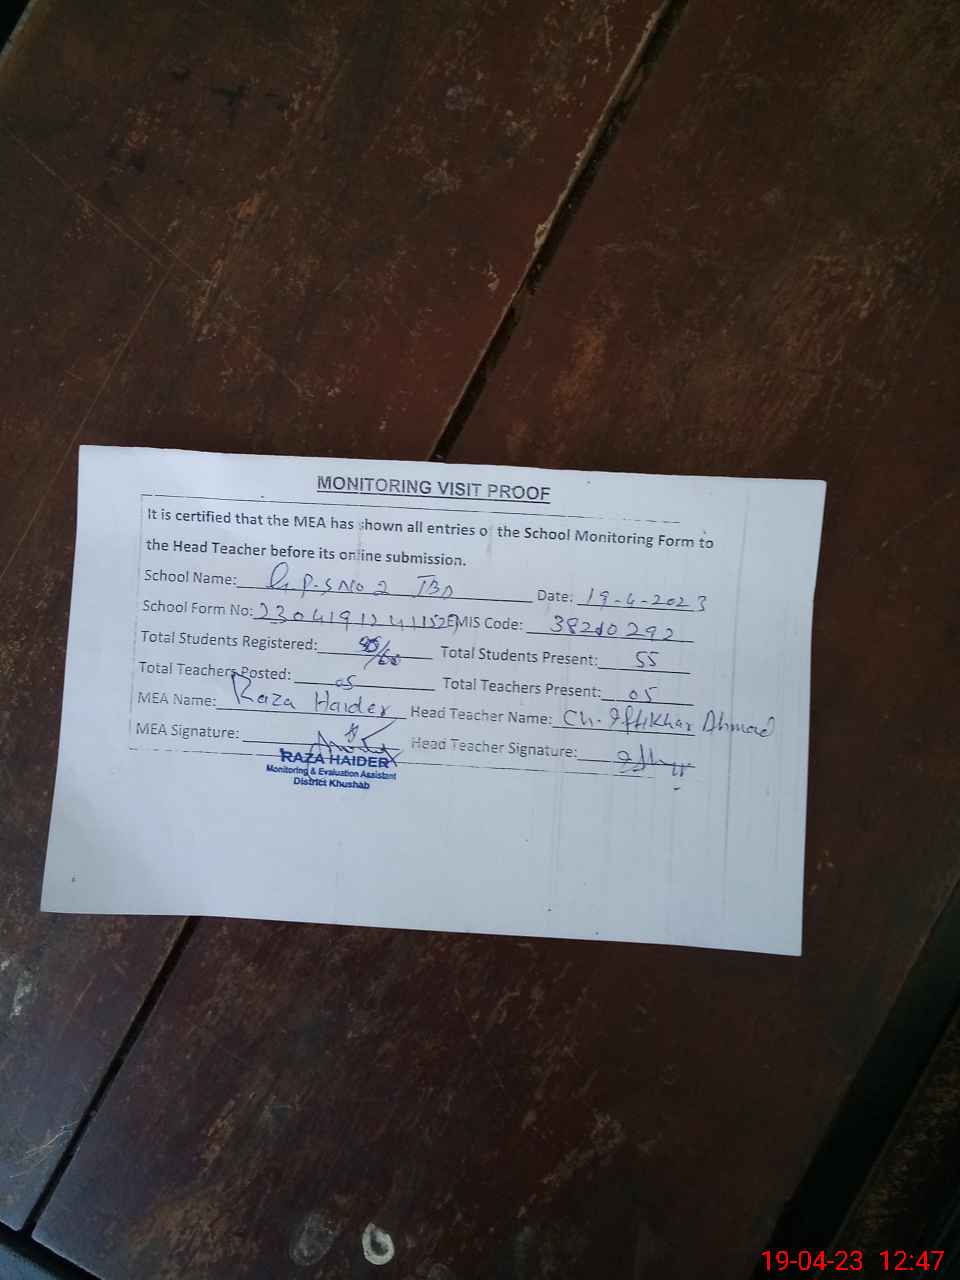 MONITORING VISIT PROOF
It is certified that the MEA has shown all entries o the School Monitoring Form to
the Head Teacher before its online submission.
School Name: G.P.S No 2 JBD Date: 19-4-2023
School Form No: EMIS Code: 38210292
Total Students Registered: Total Students Present: 55
Total Teachers Posted: 05 Total Teachers Present: 05
MEA Name: Raza Haider Head Teacher Name: Ch. Iftikhar Ahmad
MEA Signature: Head Teacher Signature:
RAZA HAIDER
Monitoring & Evaluation Assistant
District Khushab
19-04-23 12:47